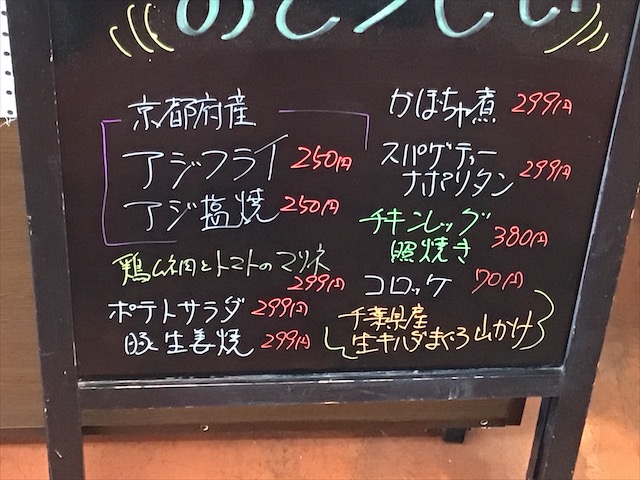 京都府産
アジフライ 250円
アジ塩焼 250円
鶏ムネ肉とトマトのマリネ
299円
ポテトサラダ 299円
豚生姜焼 299円
かぼちゃ煮 299円
スパゲティー
ナポリタン 299円
チキンレッグ
照焼き 380円
コロッケ 70円
千葉県産
生キハダまぐろ山かけ